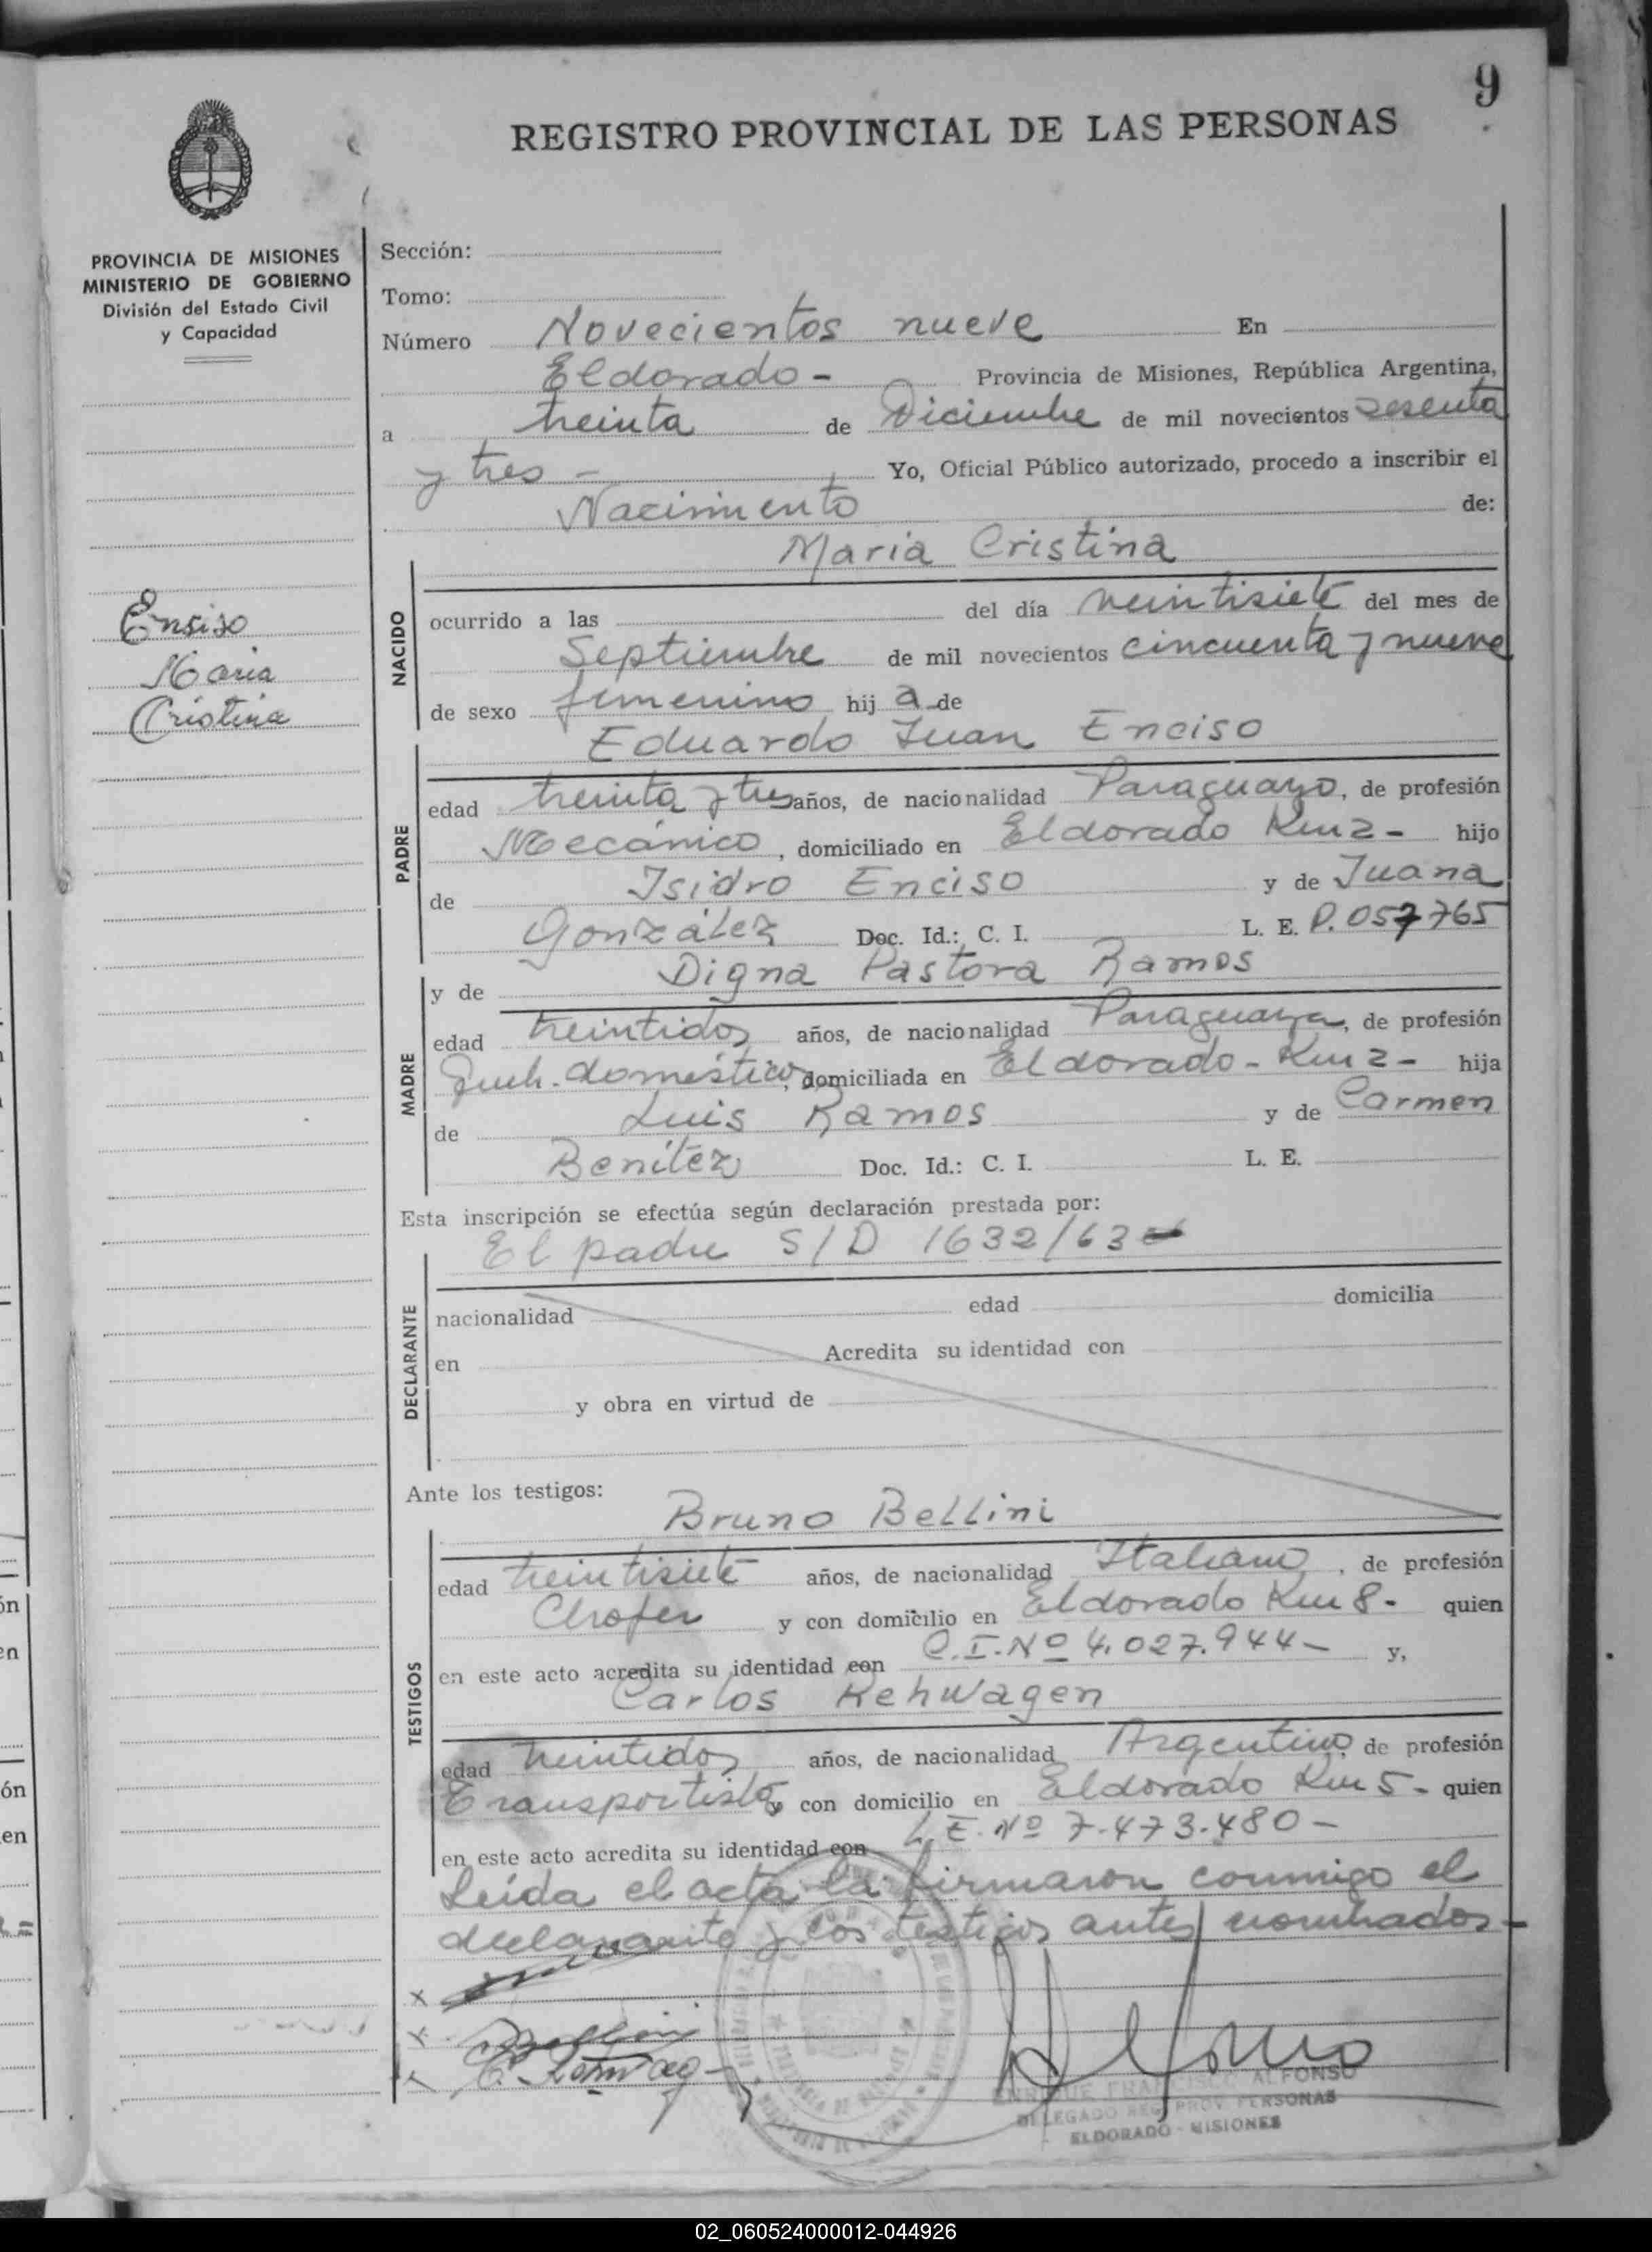 9
REGISTRO PROVINCIAL DE LAS PERSONAS
PROVINCIA DE MISIONES
MINISTERIO DE GOBIERNO
División del Estado Civil
y Capacidad
Ensiso
Maria
Cristina
Sección:
Tomo:
Número Novecientos nueve En
Eldorado - Provincia de Misiones, República Argentina,
a treinta de Diciembre de mil novecientos sesenta
y tres - Yo, Oficial Público autorizado, procedo a inscribir el
Nacimiento de:
Maria Cristina
NACIDO
ocurrido a las del día veintisiete del mes de
Septiembre de mil novecientos cincuenta y nueve
de sexo femenino hij a de
Eduardo Juan Enciso
PADRE
edad treinta y tres años, de nacionalidad Paraguayo, de profesión
Mecánico, domiciliado en Eldorado Km 2 - hijo
de Isidro Enciso y de Juana
González Doc. Id.: C. I. L. E. P. 057765
y de Digna Pastora Ramos
MADRE
edad treintidos años, de nacionalidad Paraguaya, de profesión
Queh. doméstico, domiciliada en Eldorado - Km 2 - hija
de Luis Ramos y de Carmen
Benítez Doc. Id.: C. I. L. E.
Esta inscripción se efectúa según declaración prestada por:
El padre S/D 1632/63
DECLARANTE
nacionalidad edad domicilia
en Acredita su identidad con
y obra en virtud de
Ante los testigos:
Bruno Bellini
TESTIGOS
edad treintisiete años, de nacionalidad Italiano, de profesión
Chofer y con domicilio en Eldorado Km 8 - quien
en este acto acredita su identidad con C.I. Nº 4.027.944 - y,
Carlos Rehwagen
edad treintidos años, de nacionalidad Argentino de profesión
Transportista y con domicilio en Eldorado Km 5 - quien
en este acto acredita su identidad con L.E. Nº 7.473.480 -
Leída el acta la firmaron conmigo el
declarante y los testigos antes nombrados -
x
x Bellini
x
ENRIQUE FRANCISCO ALFONSO
DELEGADO REG. PROV. PERSONAS
ELDORADO - MISIONES
02_060524000012-044926